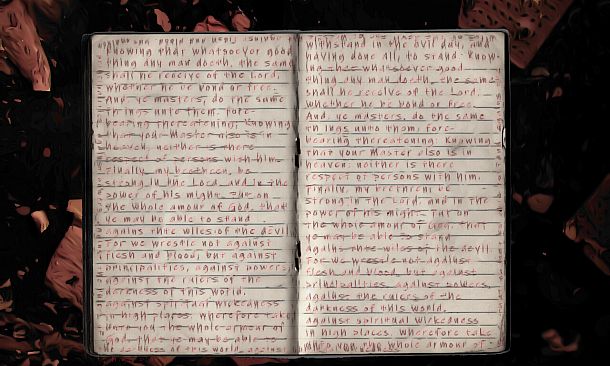 knowing that whatsoever good
thing any man doeth, the same
shall he receive of the Lord,
whether he be bond or free.
And, ye masters, do the same
things unto them, fore-
bearing threatening: knowing
that your Master also is in
heaven; neither is there
respect of persons with him.
Finally, my brethren, be
strong in the Lord, and in the
power of his might. Put on
the whole armour of God, that
ye may be able to stand
against the wiles of the devil.
For we wrestle not against
flesh and blood, but against
principalities, against powers,
against the rulers of the
darkness of this world,
against spiritual wickedness
in high places. Wherefore take
unto you the whole armour of
God, that ye may be able to
darkness of this world, against
withstand in the evil day, and
having done all, to stand. Know-
ing that whatsoever good
thing any man doeth, the same
shall he receive of the Lord,
whether he be bond or free.
And, ye masters, do the same
things unto them, fore-
bearing threatening: knowing
that your Master also is in
heaven; neither is there
respect of persons with him.
Finally, my brethren, be
strong in the Lord, and in the
power of his might. Put on
the whole armour of God, that
ye may be able to stand
against the wiles of the devil.
For we wrestle not against
flesh and blood, but against
principalities, against powers,
against the rulers of the
darkness of this world,
against spiritual wickedness
in high places. Wherefore take
unto you the whole armour of